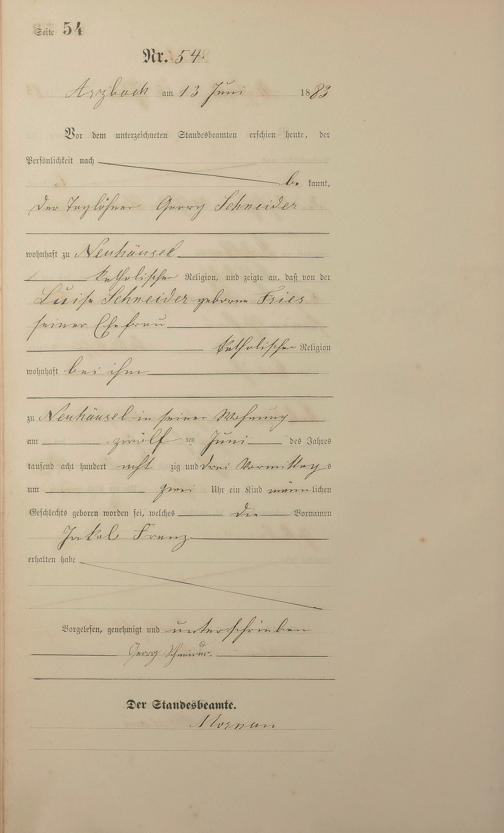 Seite 54
Nr. 54.
Arzbach am 13 Juni 1883
Vor dem unterzeichneten Standesbeamten erschien heute, der
Persönlichkeit nach
be kannt,
der Taglöhner Georg Schneider
wohnhaft zu Neuhäusel
katholischer Religion, und zeigte an, daß von der
Luise Schneider geborene Fries
seiner Ehefrau
katholischer Religion
wohnhaft bei ihm
zu Neuhäusel in seiner Wohnung
am zwölf ten Juni des Jahres
tausend acht hundert acht zig und drei Vormittags
um zwei Uhr ein Kind männlichen
Geschlechts geboren worden sei, welches die Vornamen
Jakob Franz
erhalten habe
Vorgelesen, genehmigt und unterschrieben
Georg Schneider.
Der Standesbeamte.